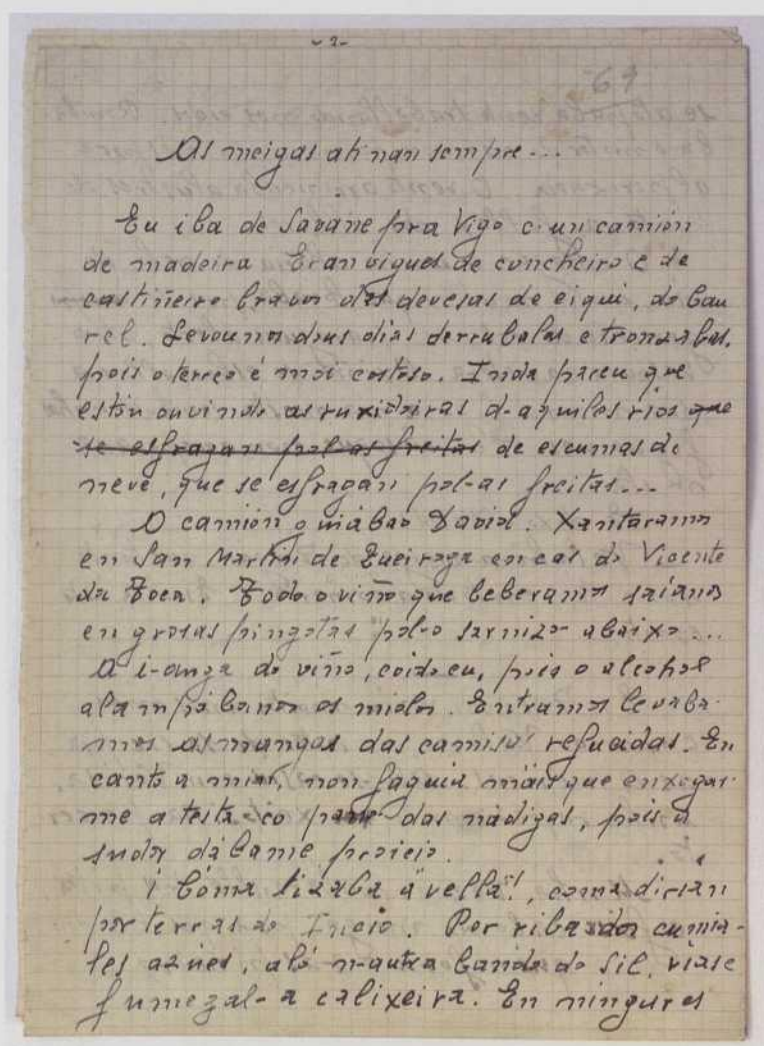 - 1 -
64
As meigas atinan sempre...
Eu iba de Savane pra Vigo c-un camión
de madeira Eran vigues de concheiro e de
castiñeiro bravos das devesas de eiquí, do Cau
rel. Levounos dous días derrubalas e tronzabas,
pois o terreo é moi costoso. Inda parceu que
estón ouvindo as ruxidoiras d-aquiles ríos que
se esfragan pol-as freitas de escumas de
neve, que se esfragan pol-as freitas...
O camión guiábao David. Xantaramos
en San Martín de Queiroga en cas do Vicente
da Toca. Todo o viño que beberamos saíanos
en grosas pingotas pol-o sarnizo abaixo...
A i-auga do viño, coido eu, pois o alcohol
alampábanos os miolos. Entramos levaba-
mos as mangas das camisas refucidas. En
canto a min, non faguía máis que enxogar-
me a testa co pano das nádigas, pois a
sudor dábame proicio.
¡ Bóma tizaba a "vella"!, coma dirían
por terras do Incio. Por riba dos cumia-
les azues, aló n-autra banda do Sil, víase
fumegal-a calixeira. En ningures